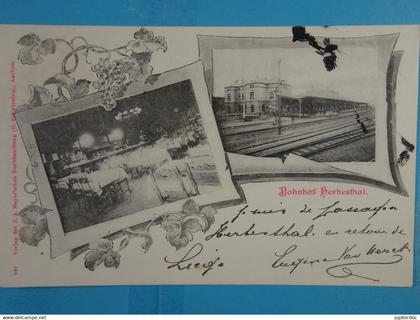 Bahnhof Herbesthal.
je suis de passage
Herbesthal en retour de
Liege
Eugène Van
Verlag der J. A. Mayer'schen Buchhandlung Aachen
jupiter20.com